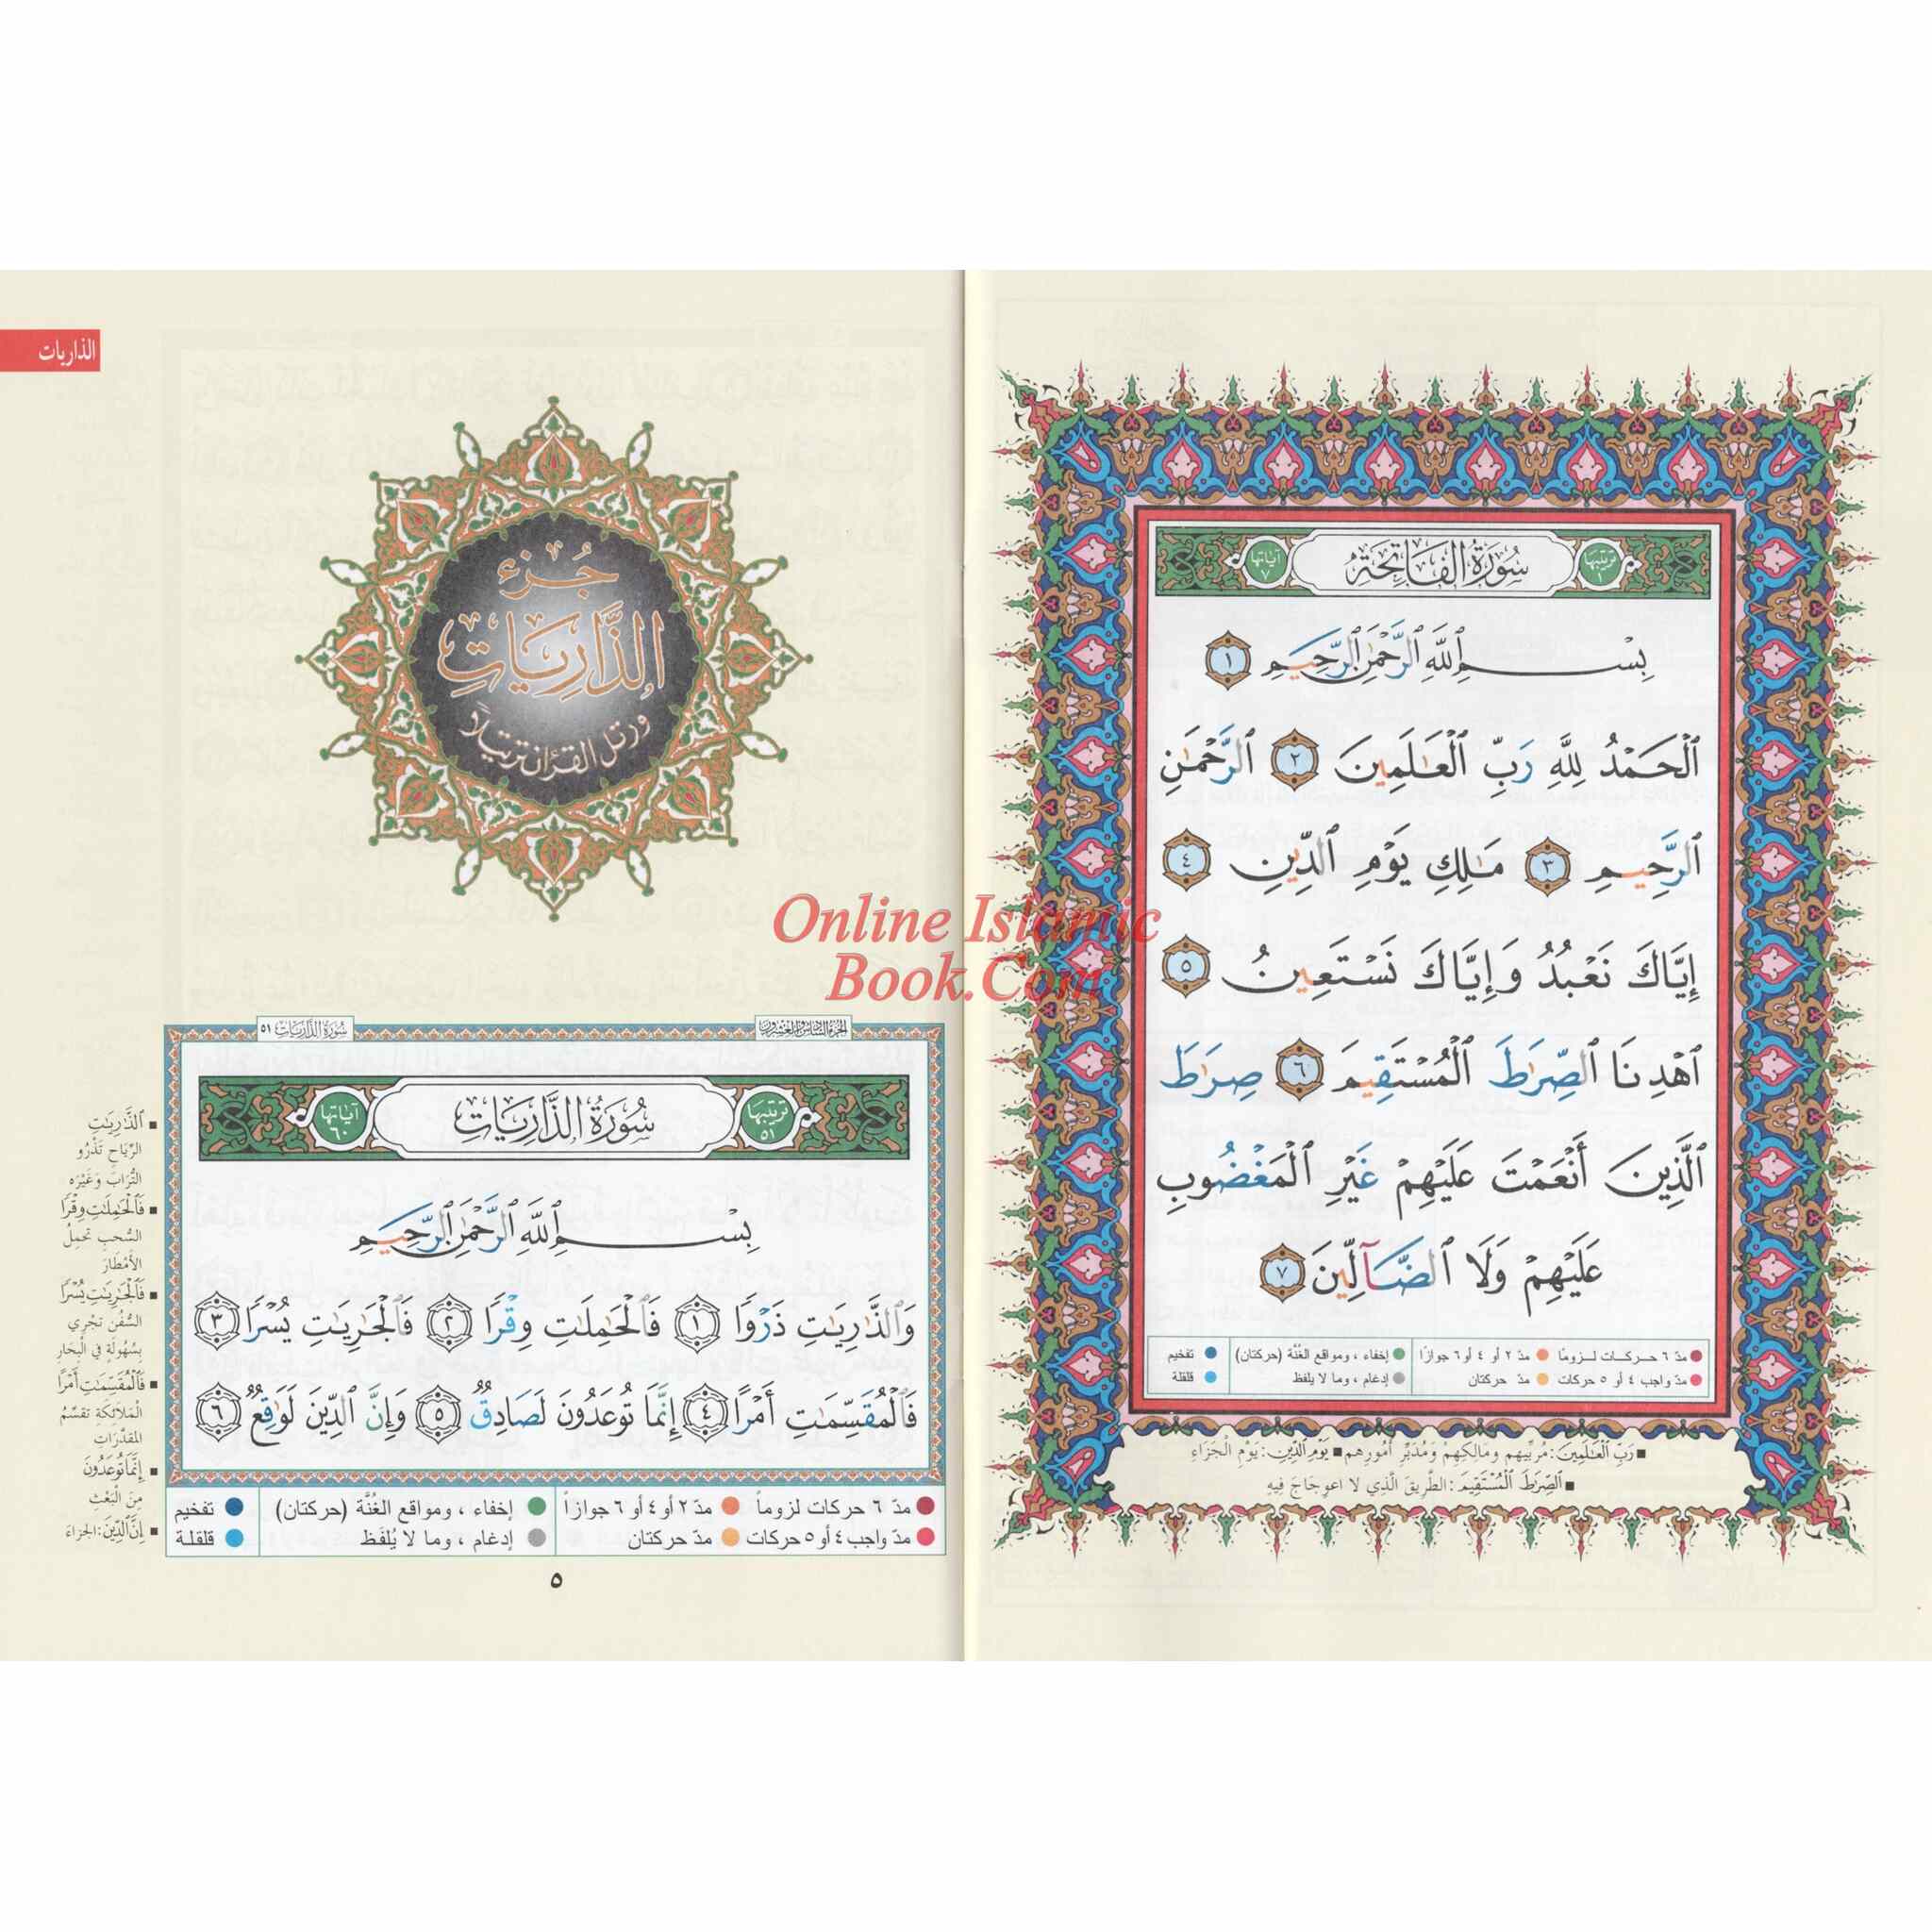 سُورَةُ الفَاتِحَةِ
ترتيبها ١
آياتها ٧
بِسْمِ ٱللَّهِ ٱلرَّحْمَٰنِ ٱلرَّحِيمِ ١
ٱلْحَمْدُ لِلَّهِ رَبِّ ٱلْعَٰلَمِينَ ٢ ٱلرَّحْمَٰنِ
ٱلرَّحِيمِ ٣ مَٰلِكِ يَوْمِ ٱلدِّينِ ٤
إِيَّاكَ نَعْبُدُ وَإِيَّاكَ نَسْتَعِينُ ٥
ٱهْدِنَا ٱلصِّرَٰطَ ٱلْمُسْتَقِيمَ ٦ صِرَٰطَ
ٱلَّذِينَ أَنْعَمْتَ عَلَيْهِمْ غَيْرِ ٱلْمَغْضُوبِ
عَلَيْهِمْ وَلَا ٱلضَّآلِّينَ ٧
مدّ ٦ حركات لزومًا مدّ ٢ أو ٤ أو ٦ جوازًا إخفاء ، ومواقع الغُنَّة (حركتان) تفخيم
مدّ واجب ٤ أو ٥ حركات مدّ حركتان إدغام ، وما لا يلفظ قلقلة
رَبِّ ٱلْعَٰلَمِينَ: مُرَبِّيهِم ومَالِكِهِمْ وَمُدَبِّرِ أُمُورِهِم يَوْمِ ٱلدِّينِ: يَوْمِ الْجَزَاءِ
ٱلصِّرَٰطَ ٱلْمُسْتَقِيمَ: الطَّرِيقَ الَّذِي لا اعوِجَاجَ فِيهِ
الذاريات
جُزء
الذَّارِيَاتِ
ورتل القرءان ترتيلاً
الجزء السادس والعشرون
سُورَةُ الذَّارِيَاتِ ٥١
سُورَةُ الذَّارِيَاتِ
ترتيبها ٥١
آياتها ٦٠
بِسْمِ ٱللَّهِ ٱلرَّحْمَٰنِ ٱلرَّحِيمِ
وَٱلذَّٰرِيَٰتِ ذَرْوًا ١ فَٱلْحَٰمِلَٰتِ وِقْرًا ٢ فَٱلْجَٰرِيَٰتِ يُسْرًا ٣
فَٱلْمُقَسِّمَٰتِ أَمْرًا ٤ إِنَّمَا تُوعَدُونَ لَصَادِقٌ ٥ وَإِنَّ ٱلدِّينَ لَوَٰقِعٌ ٦
مدّ ٦ حركات لزوماً مدّ ٢ أو ٤ أو ٦ جوازاً إخفاء ، ومواقع الغُنَّة (حركتان) تفخيم
مدّ واجب ٤ أو ٥ حركات مدّ حركتان إدغام ، وما لا يُلفَظ قلقلة
ٱلذَّٰرِيَٰتِ
الرِّيَاحِ تَذْرُو
التُّرَابَ وَغَيْرَه
فَٱلْحَٰمِلَٰتِ وِقْرًا
السُّحبِ تحمِلُ
الأَمْطَارَ
فَٱلْجَٰرِيَٰتِ يُسْرًا
السُّفُنِ تجْرِي
بِسُهُولَةٍ فِي الْبِحَارِ
فَٱلْمُقَسِّمَٰتِ أَمْرًا
الْمَلائِكَةِ تقسِّمُ
المقدَّرَاتِ
إِنَّمَا تُوعَدُونَ
مِنَ الْبَعْثِ
إِنَّ ٱلدِّينَ: الجزاءَ
٥
Online Islamic
Book.Com